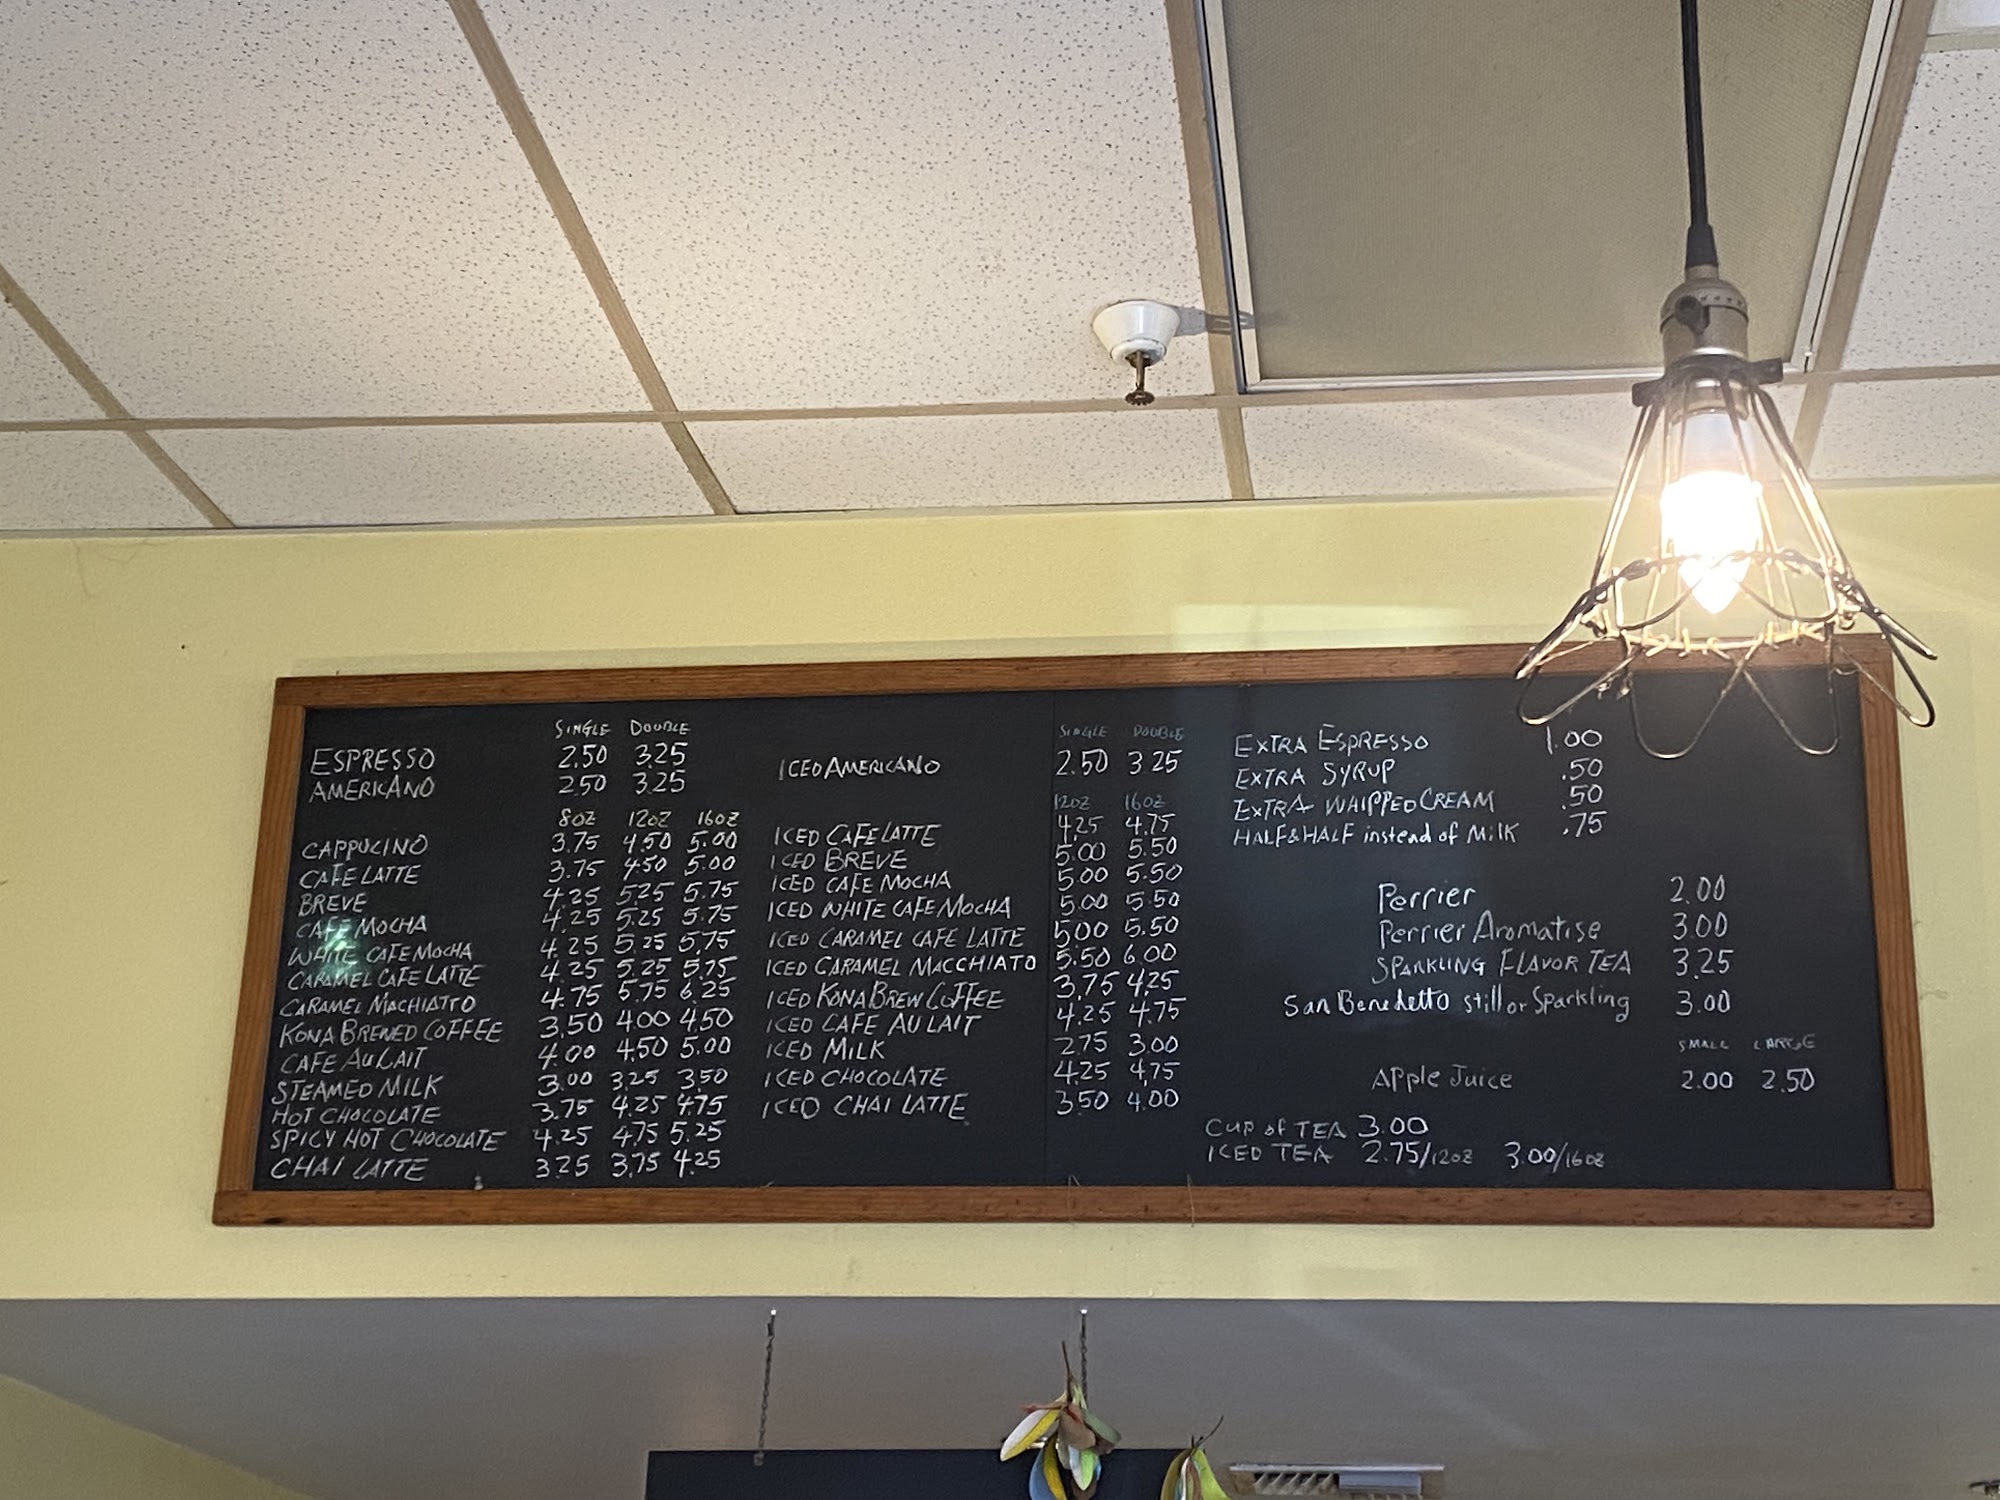 SINGLE DOUBLE
ESPRESSO 2.50 3.25
AMERICANO 2.50 3.25
8OZ 12OZ 16OZ
CAPPUCINO 3.75 4.50 5.00
CAFE LATTE 3.75 4.50 5.00
BREVE 4.25 5.25 5.75
CAFE MOCHA 4.25 5.25 5.75
WHITE CAFE MOCHA 4.25 5.25 5.75
CARAMEL CAFE LATTE 4.25 5.25 5.75
CARAMEL MACHIATTO 4.75 5.75 6.25
KONA BREWED COFFEE 3.50 4.00 4.50
CAFE AU LAIT 4.00 4.50 5.00
STEAMED MILK 3.00 3.25 3.50
HOT CHOCOLATE 3.75 4.25 4.75
SPICY HOT CHOCOLATE 4.25 4.75 5.25
CHAI LATTE 3.25 3.75 4.25
SINGLE DOUBLE
ICED AMERICANO 2.50 3.25
12OZ 16OZ
ICED CAFE LATTE 4.25 4.75
ICED BREVE 5.00 5.50
ICED CAFE MOCHA 5.00 5.50
ICED WHITE CAFE MOCHA 5.00 5.50
ICED CARAMEL CAFE LATTE 5.00 5.50
ICED CARAMEL MACCHIATO 5.50 6.00
ICED KONA BREW COFFEE 3.75 4.25
ICED CAFE AU LAIT 4.25 4.75
ICED MILK 2.75 3.00
ICED CHOCOLATE 4.25 4.75
ICED CHAI LATTE 3.50 4.00
EXTRA ESPRESSO 1.00
EXTRA SYRUP .50
EXTRA WHIPPED CREAM .50
HALF & HALF instead of MILK .75
Perrier 2.00
Perrier Aromatise 3.00
SPARKLING FLAVOR TEA 3.25
San Benedetto still or Sparkling 3.00
SMALL LARGE
APPle Juice 2.00 2.50
CUP of TEA 3.00
ICED TEA 2.75/12OZ 3.00/16OZ